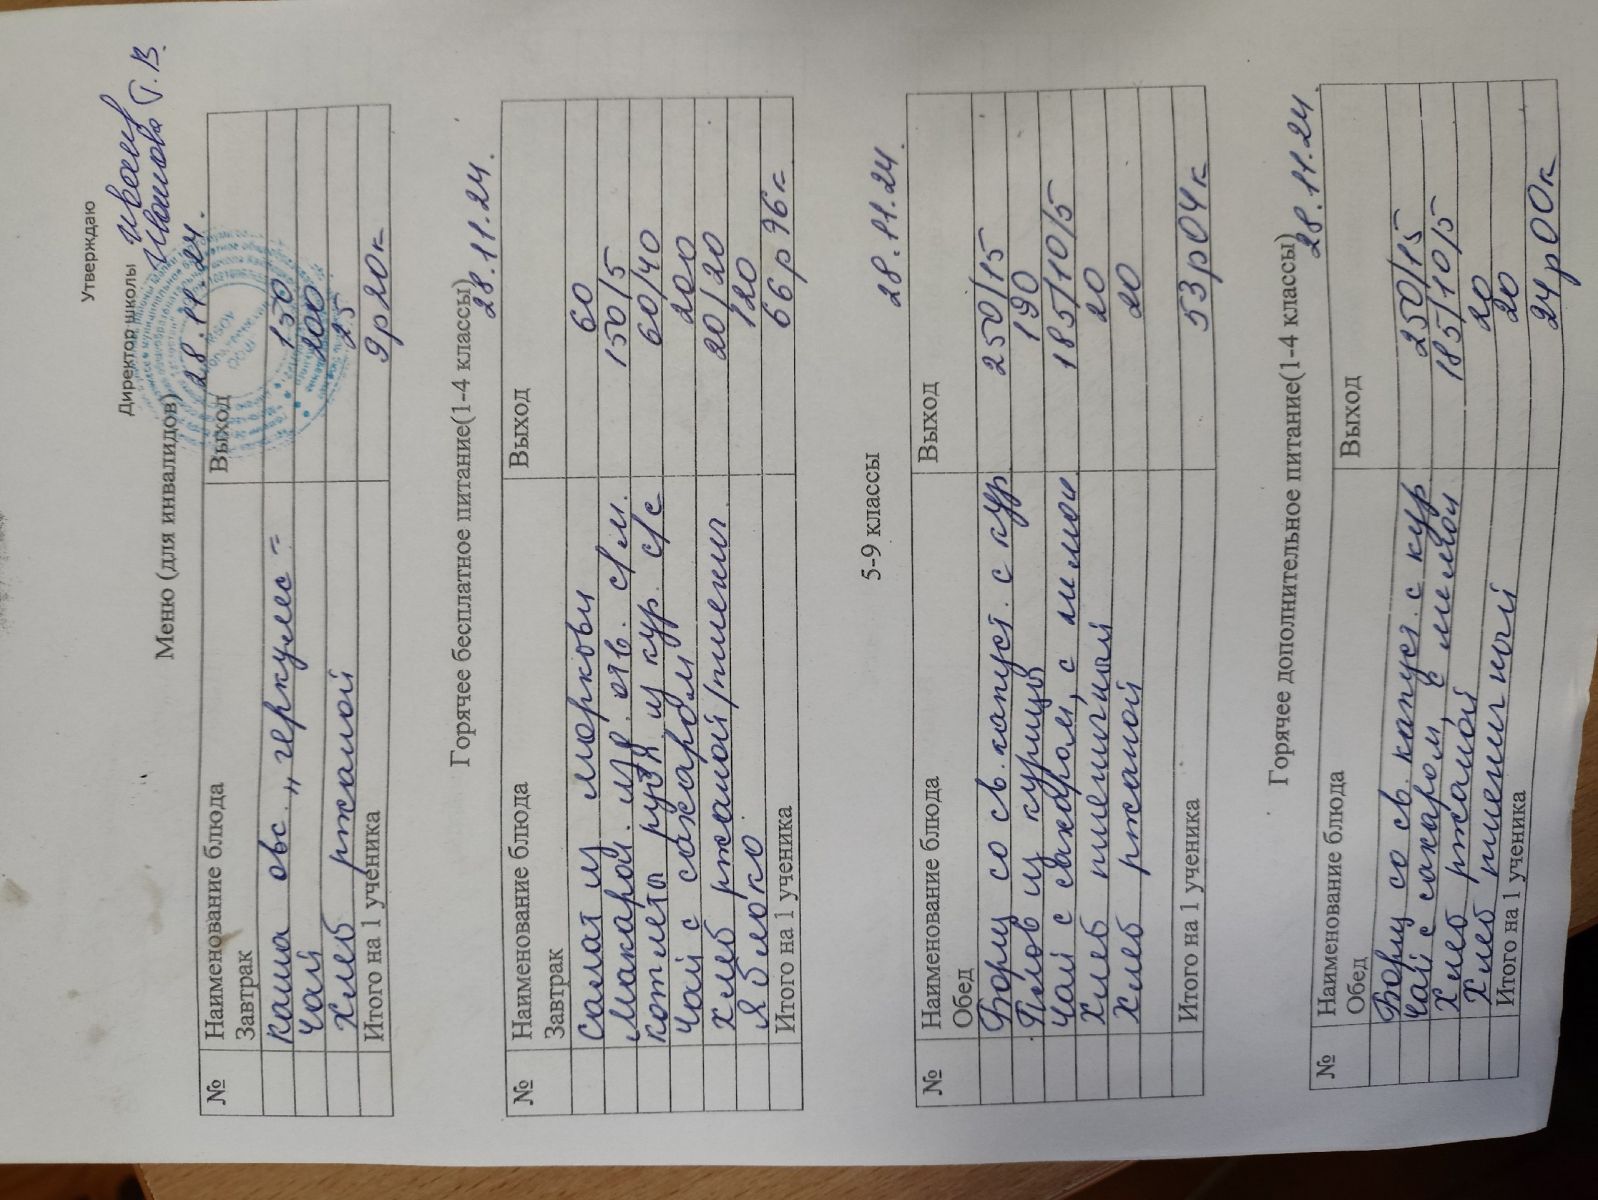 Утверждаю
Директор школы
Иванова Т.В.
Меню (для инвалидов) 28.11.24.
№ Наименование блюда Выход
Завтрак
каша овс. „геркулес" 150
чай 200
хлеб ржаной 25
Итого на 1 ученика 9р20к
Горячее бесплатное питание(1-4 классы)
28.11.24.
№ Наименование блюда Выход
Завтрак
салат из моркови 60
макарон. изд. отв. с/м. 150/5
котлеты рубл. из кур. с/с 60/40
чай с сахаром 200
хлеб ржаной/пшенич. 20/20
яблоко 120
Итого на 1 ученика 66р96к
5-9 классы 28.11.24.
№ Наименование блюда Выход
Обед
Борщ со св. капуст. с кур 250/15
Плов из курицы 190
чай с сахаром, с лимон 185/10/5
хлеб пшеничный 20
хлеб ржаной 20
Итого на 1 ученика 53р04к
Горячее дополнительное питание(1-4 классы)
28.11.24
№ Наименование блюда Выход
Обед
Борщ со св. капуст. с кур 250/15
чай с сахаром, с лимон 185/10/5
хлеб ржаной 20
хлеб пшеничный 20
Итого на 1 ученика 24р00к